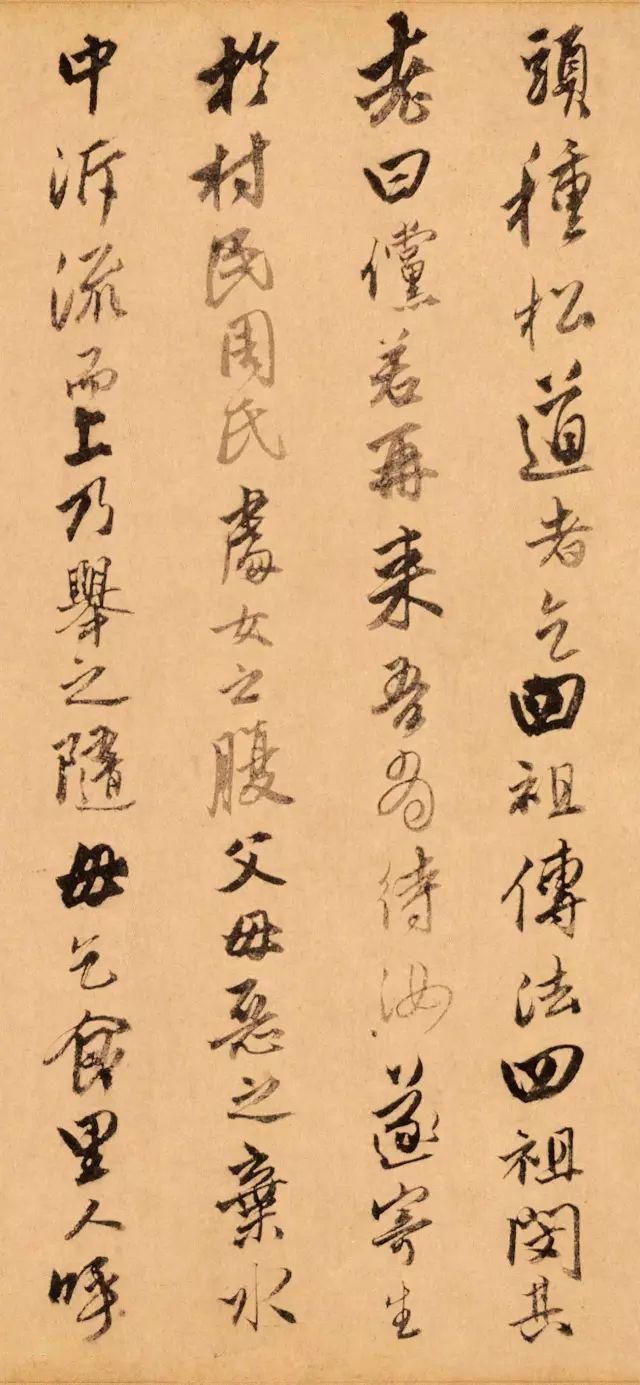 頭種松道者乞四祖傳法四祖閔其
老曰儻若再来吾當待汝遂寄生
於村民周氏處女之腹父母惡之棄水
中泝流而上乃舉之隨母乞食里人呼